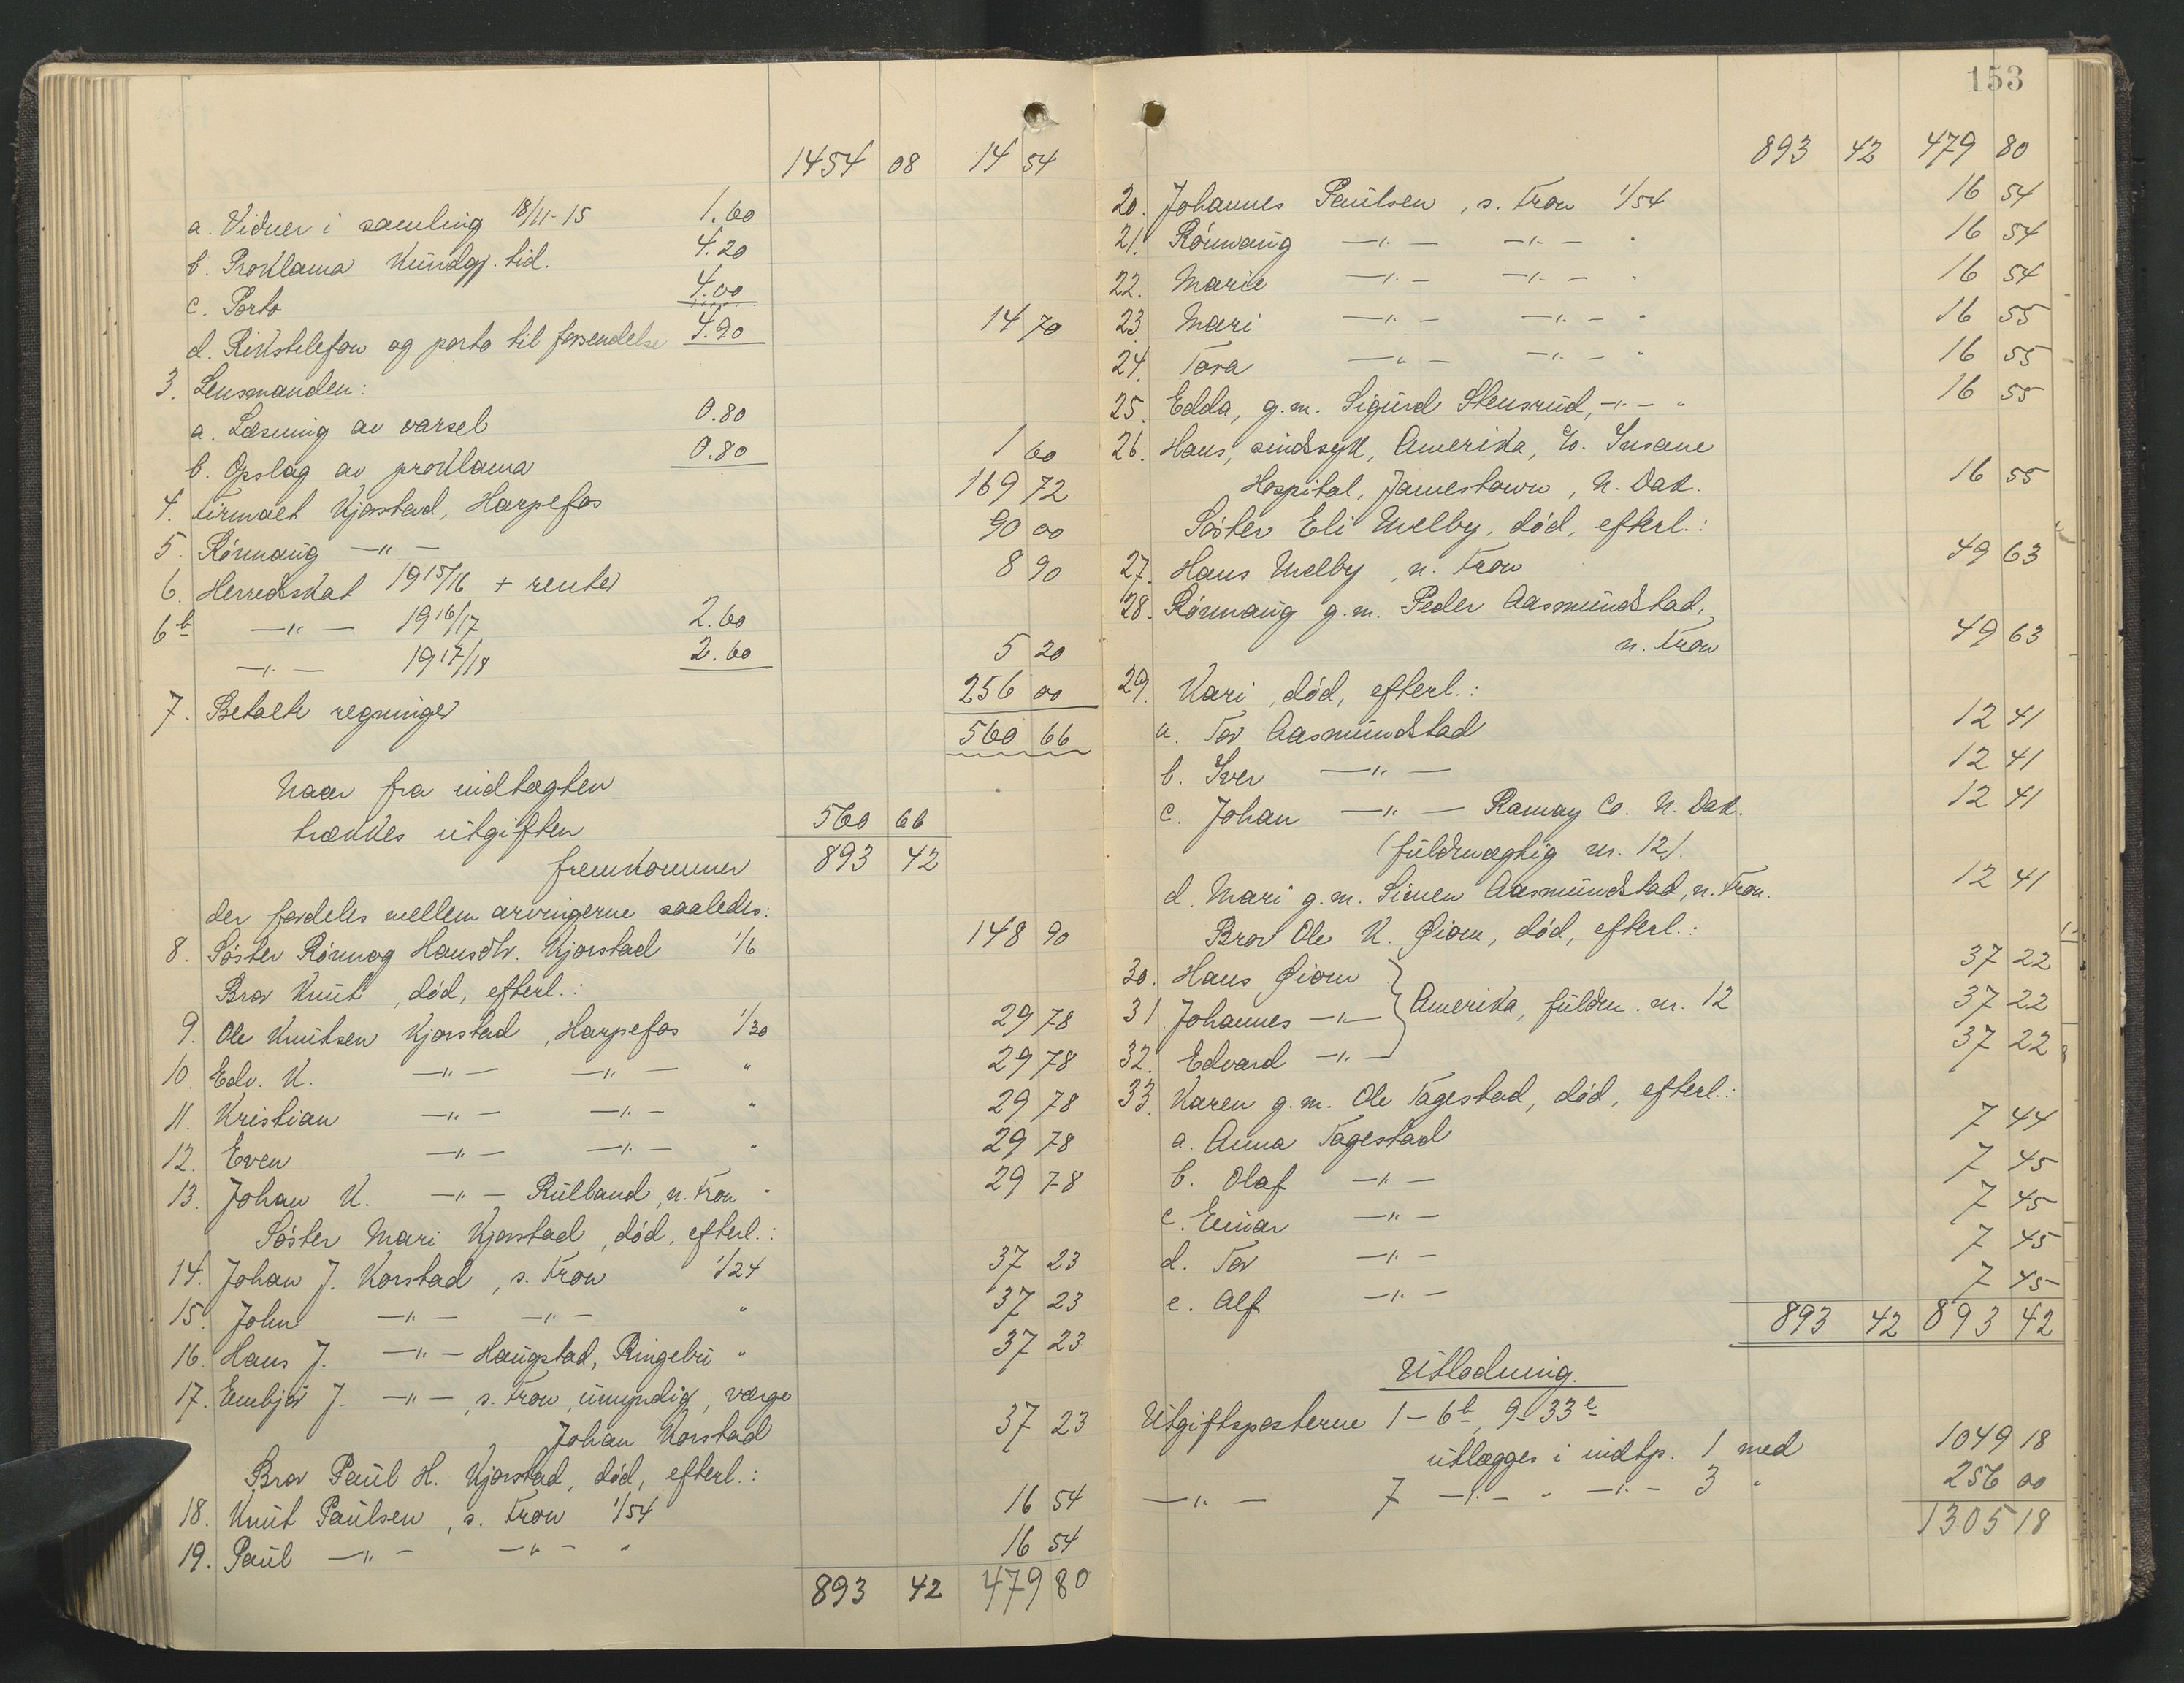 1454 08 14 54
a. Vidner i samling 18/11-15 1.60
b. Proklama Kundgj. tid. 4.20
c. Porto 4.00
d. Rikstelefon og porto til forsendelse 4.90 14 70
3. Lensmanden:
a. Læsning av varsel 0.80
b. Opslag av proklama 0.80 1 60
4. Firmaet Kjorstad, Harpefos 169 72
5. Rönnaug —"— 90 00
6. Herredskat 1915/16 + renter 8 90
6b —"— 1916/17 2.60
—"— 1917/18 2.60 5 20
7. Betalte regninger 256 00
560 66
Naar fra indtægten
trækkes utgiften 560 66
fremkommer 893 42
der fordeles mellem arvingerne saaledes:
8. Söster Rönnog Hansdtr. Kjorstad 1/6 148 90
Bror Knut, död, efterl.:
9. Ole Knutsen Kjorstad, Harpefos 1/30 29 78
10. Edv. K. —"— —"— " 29 78
11. Kristian —"— —"— " 29 78
12. Even —"— —"— " 29 78
13. Johan K. —"— Rulland, n. Fron " 29 78
Söster Mari Kjorstad, död, efterl.:
14. Johan J. Korstad, s. Fron 1/24 37 23
15. John —"— —"— " 37 23
16. Hans J. —"— Haugstad, Ringebu " 37 23
17. Embjör J. —"—, s. Fron, umyndig, værge
Johan Korstad 37 23
Bror Paul H. Kjorstad, död, efterl.:
18. Knut Paulsen, s. Fron 1/54 16 54
19. Paul —"— —"— " 16 54
893 42 479 80
153
893 42 479 80
20. Johannes Paulsen, s. Fron 1/54 16 54
21. Rönnaug —"— —"— " 16 54
22. Marie —"— —"— " 16 54
23. Mari —"— —"— " 16 55
24. Tora —"— —"— " 16 55
25. Edda, g.m. Sigurd Stensrud, —"— " 16 55
26. Hans, sindssyk, Amerika, Insane
Hospital, Jamestown, N. Dak. 16 55
Söster Eli Melby, död, efterl.:
27. Hans Melby, n. Fron 49 63
28. Rönnaug g.m. Peder Aasmundstad,
n. Fron 49 63
29. Kari, död, efterl.:
a. Tor Aasmundstad 12 41
b. Iver —"— 12 41
c. Johan —"— Ramay Co. N. Dak. 12 41
(fuldmægtig nr. 12).
d. Mari g.m. Simen Aasmundstad, n. Fron. 12 41
Bror Ole K. Öiom, död, efterl.:
30. Hans Öiom 37 22
31. Johannes —"— Amerika, fuldm. nr. 12 37 22
32. Edvard —"— 37 22
33. Karen g.m. Ole Tagestad, död, efterl.:
a. Anna Tagestad 7 44
b. Olaf —"— 7 45
c. Einar —"— 7 45
d. Tor —"— 7 45
e. Alf —"— 7 45
893 42 893 42
Utlodning.
Utgiftsposterne 1-6b, 9-33e
utlægges i indtp. 1 med 1049 18
—"— 7 —"— " —"— 3 " 256 00
1305 18